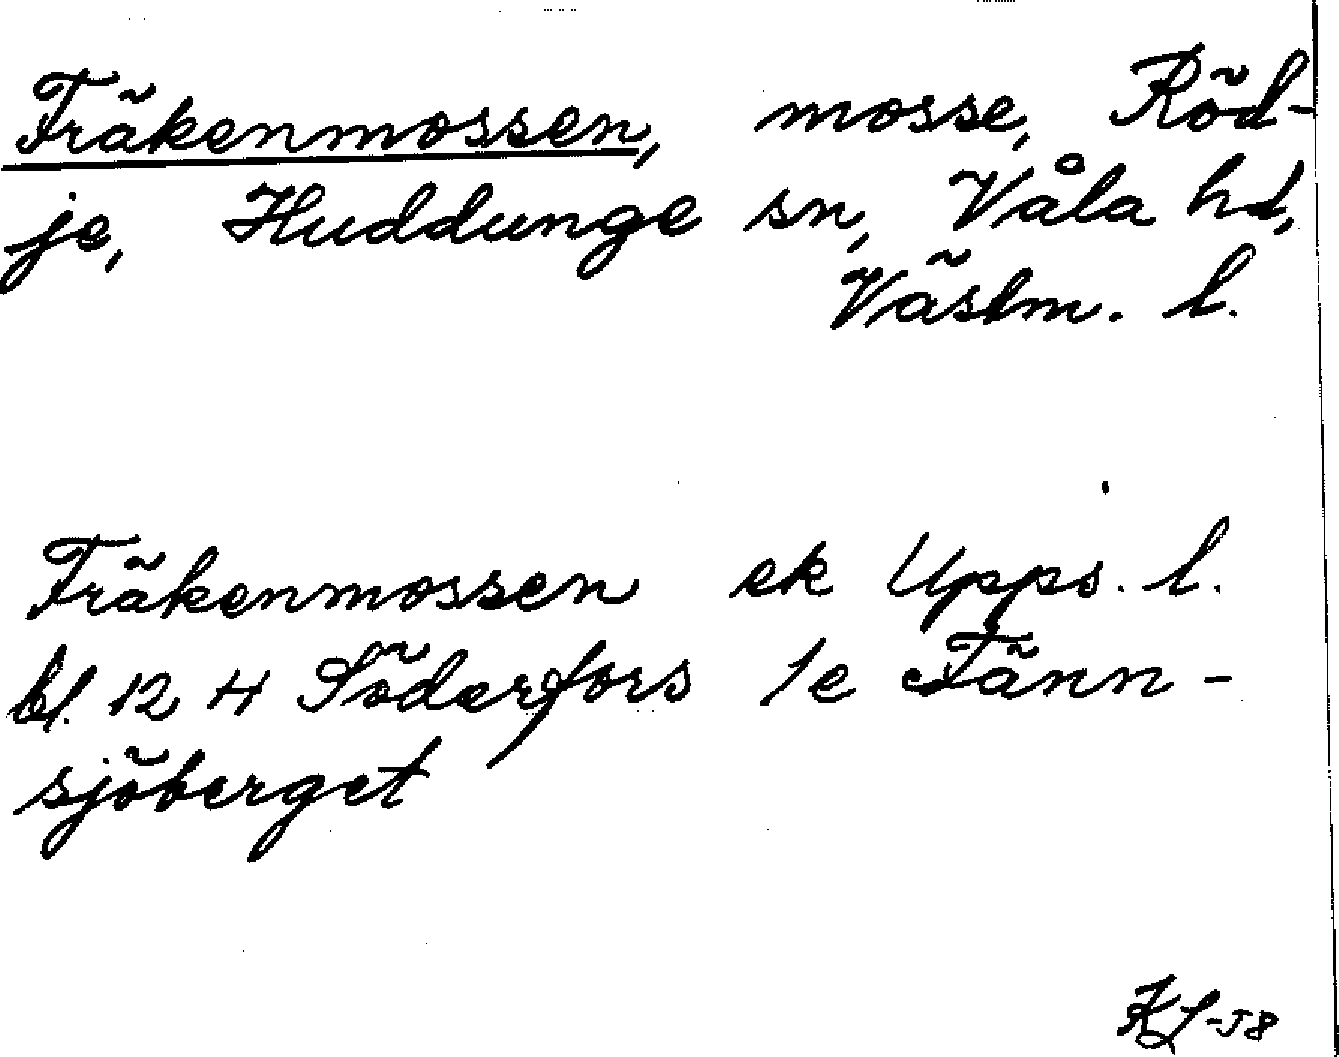 Fräkenmossen, mosse, Röd-
je, Huddunge sn, Våla hd,
Västm. l.
Fräkenmossen ek Upps. l.
bl. 12 H Söderfors 1e Tänn-
sjöberget
KL-58